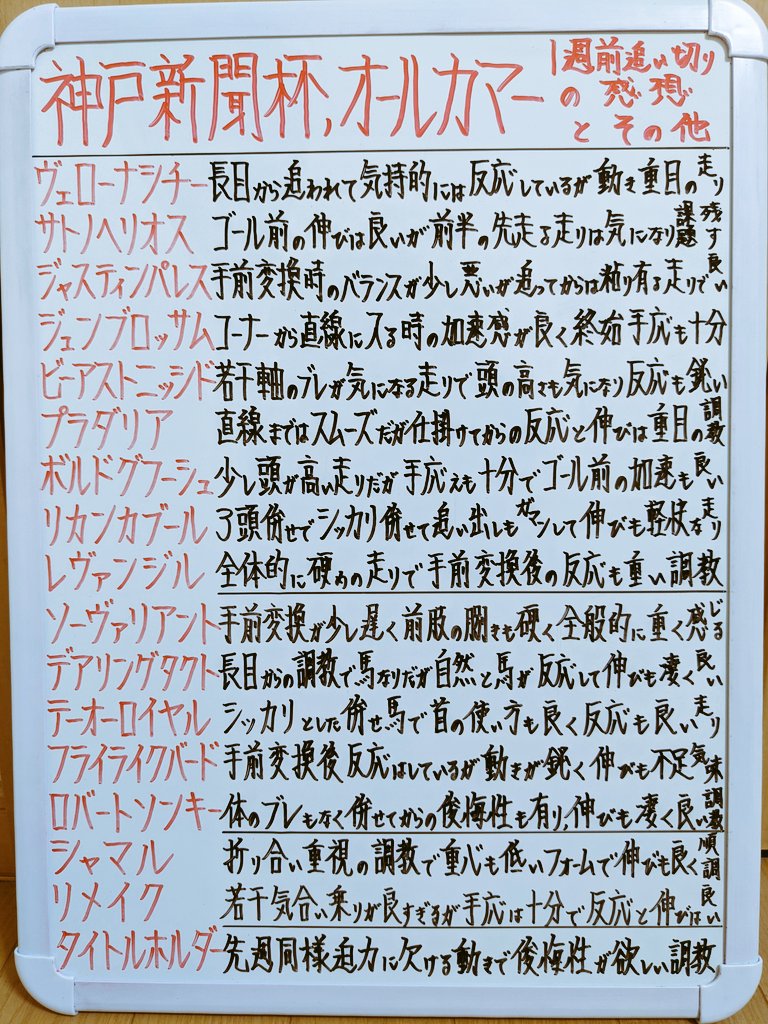 神戸新聞杯,オールカマー 1週前追い切りの感想とその他
ヴェローナシチー 長目から追われて気持的には反応しているが動き重目の走り
サトノヘリオス ゴール前の伸びは良いが前半の先走る走りは気になり課題残す
ジャスティンパレス 手前変換時のバランスが少し悪いが追ってからは粘り有る走りで良い
ジュンブロッサム コーナーから直線に入る時の加速感が良く終始手応も十分
ビーアストニッシド 若干軸のブレが気になる走りで頭の高さも気になり反応も鋭い
プラダリア 直線まではスムーズだが仕掛けてからの反応と伸びは重目の調教
ボルドグフーシュ 少し頭が高い走りだが手応えも十分でゴール前の加速も良い
リカンカブール 3頭併せでシッカリ併せて追い出しもガマンして伸びも軽快な走り
レヴァンジル 全体的に硬めの走りで手前変換後の反応も重い調教
ソーヴァリアント 手前変換が少し遅く前肢の捌きも硬く全般的に重く感じる
デアリングタクト 長目からの調教で馬なりだが自然と馬が反応して伸びも凄く良い
テーオーロイヤル シッカリとした併せ馬で首の使い方も良く反応も良い走り
フライライクバード 手前変換後反応はしているが動きが鋭く伸びも不足気味
ロバートソンキー 体のブレもなく併せてからの俊悔性も有り,伸びも凄く良い調教
シャマル 折り合い重視の調教で重心も低いフォームで伸びも良く順調
リメイク 若干気合い乗りが良すぎるが手応は十分で反応と伸びは良い
タイトルホルダー 先週同様迫力に欠ける動きで俊悔性が欲しい調教